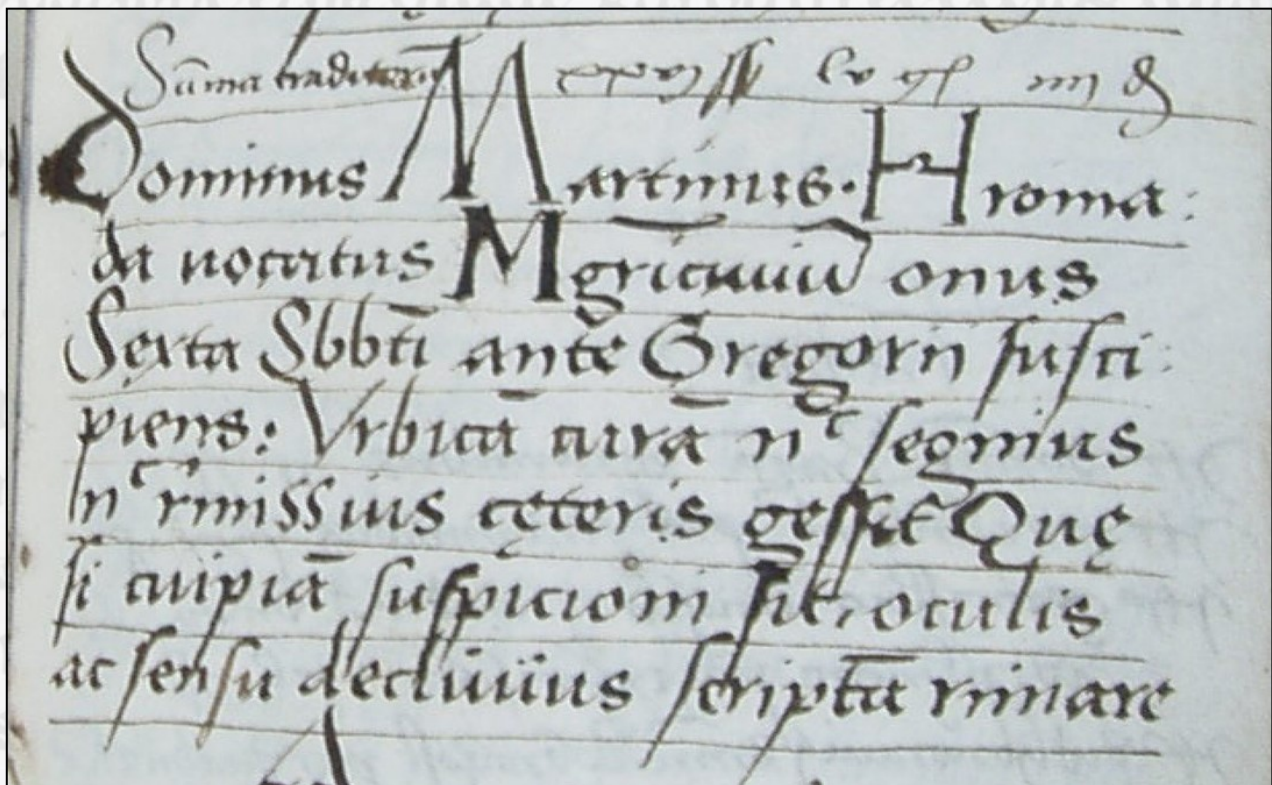 Sūma traditorū xxvj ss lv gl iiij d
Dominus Martinus. Hroma:
da uocatus Mgricūiū onus
Sexta Sbbti ante Gregorii susci:
piens: Vrbicā curā nc segnius
nc rmissius cęteris gessit Quę
si cuipiā suspicioni sit oculis
ac sensu decliuius scripta rimare